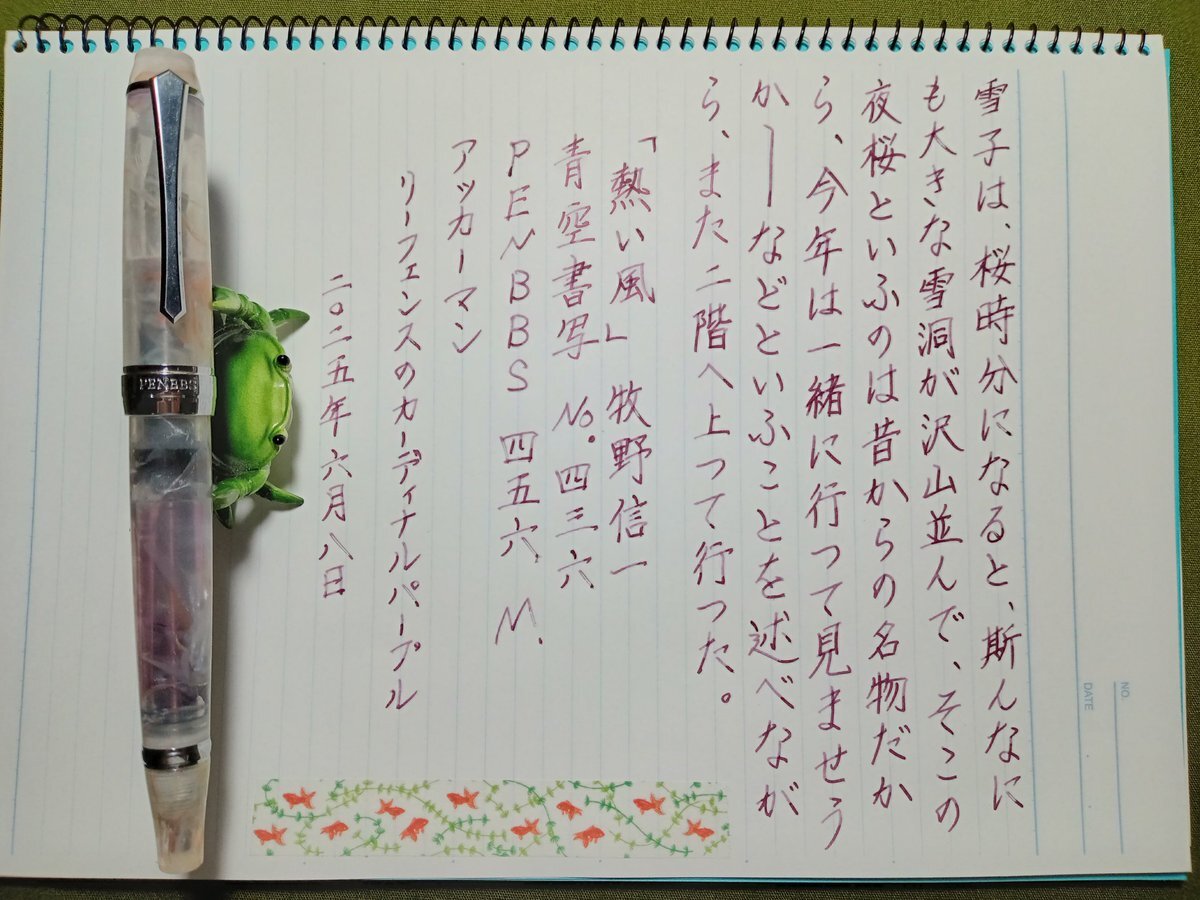 雪子は、桜時分になると、斯んなに
も大きな雪洞が沢山並んで、そこの
夜桜といふのは昔からの名物だか
ら、今年は一緒に行つて見ませう
か――などといふことを述べなが
ら、また二階へ上つて行つた。
「熱い風」 牧野信一
青空書写 No.四三六
PENBBS 四五六、M.
アッカーマン
リーフェンスのカーディナルパープル
二〇二五年六月八日
PENBBS
NO.
DATE